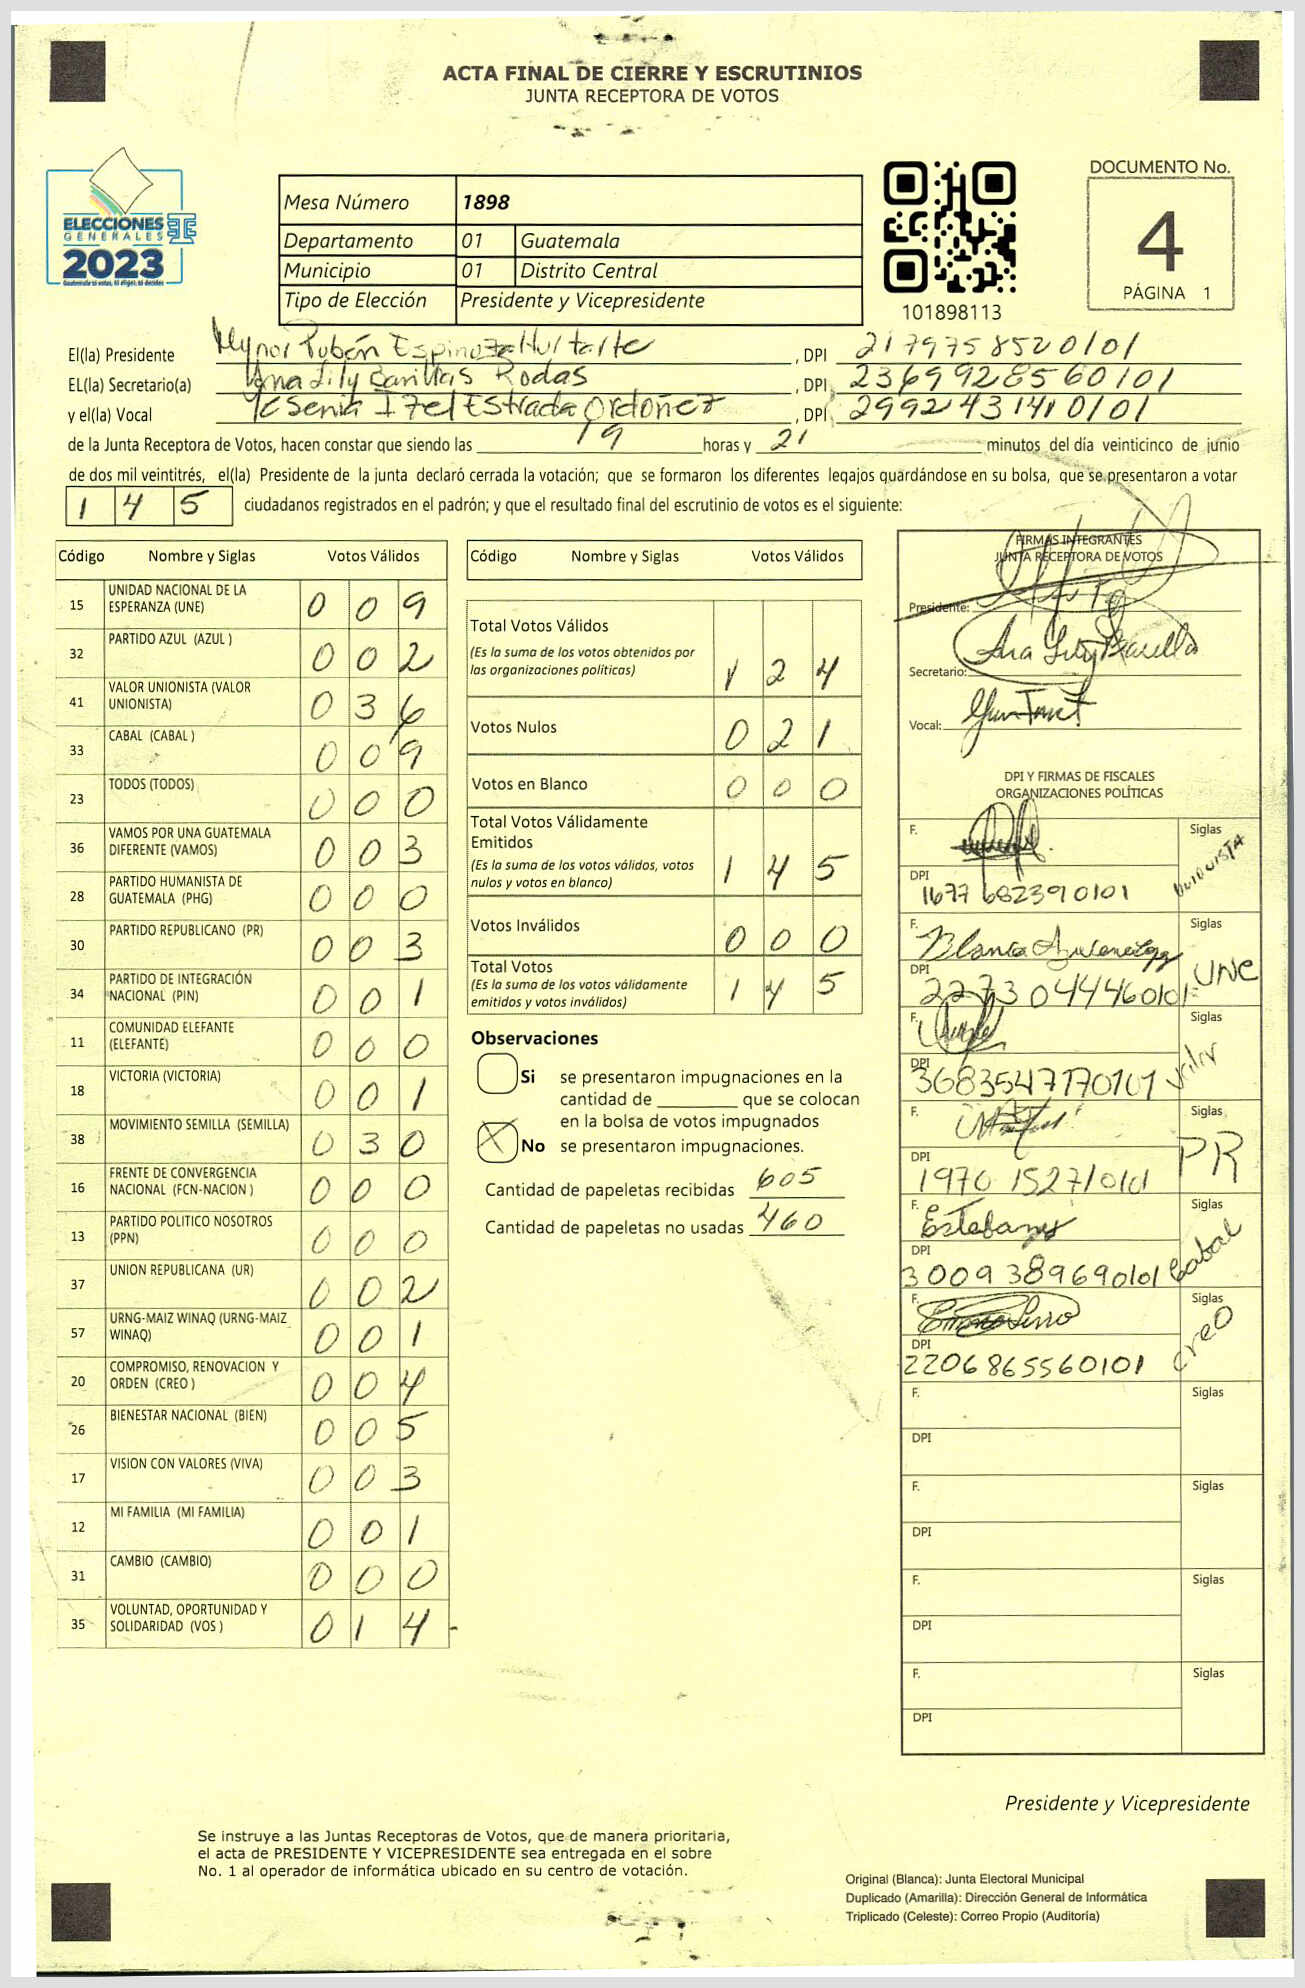 ACTA FINAL DE CIERRE Y ESCRUTINIOS
JUNTA RECEPTORA DE VOTOS
ELECCIONES
GENERALES
2023
Mesa Número 1898
Departamento 01 Guatemala
Municipio 01 Distrito Central
Tipo de Elección Presidente y Vicepresidente
101898113
DOCUMENTO No.
4
PÁGINA 1
El(la) Presidente Mynor Rubén Espinoza Hurtarte , DPI 2179758520101
EL(la) Secretario(a) Ana Lily Barillas Rodas , DPI 2369928560101
y el(la) Vocal Yesenia Itzel Estrada Ordoñez , DPI 2992431410101
de la Junta Receptora de Votos, hacen constar que siendo las 19 horas y 21 minutos del día veinticinco de junio
de dos mil veintitrés, el(la) Presidente de la junta declaró cerrada la votación; que se formaron los diferentes legajos guardándose en su bolsa, que se presentaron a votar
145 ciudadanos registrados en el padrón; y que el resultado final del escrutinio de votos es el siguiente:
Código Nombre y Siglas Votos Válidos
15 UNIDAD NACIONAL DE LA ESPERANZA (UNE) 0 0 9
32 PARTIDO AZUL (AZUL ) 0 0 2
41 VALOR UNIONISTA (VALOR UNIONISTA) 0 3 6
33 CABAL (CABAL ) 0 0 9
23 TODOS (TODOS) 0 0 0
36 VAMOS POR UNA GUATEMALA DIFERENTE (VAMOS) 0 0 3
28 PARTIDO HUMANISTA DE GUATEMALA (PHG) 0 0 0
30 PARTIDO REPUBLICANO (PR) 0 0 3
34 PARTIDO DE INTEGRACIÓN NACIONAL (PIN) 0 0 1
11 COMUNIDAD ELEFANTE (ELEFANTE) 0 0 0
18 VICTORIA (VICTORIA) 0 0 1
38 MOVIMIENTO SEMILLA (SEMILLA) 0 3 0
16 FRENTE DE CONVERGENCIA NACIONAL (FCN-NACION ) 0 0 0
13 PARTIDO POLITICO NOSOTROS (PPN) 0 0 0
37 UNION REPUBLICANA (UR) 0 0 2
57 URNG-MAIZ WINAQ (URNG-MAIZ WINAQ) 0 0 1
20 COMPROMISO, RENOVACION Y ORDEN (CREO ) 0 0 4
26 BIENESTAR NACIONAL (BIEN) 0 0 5
17 VISION CON VALORES (VIVA) 0 0 3
12 MI FAMILIA (MI FAMILIA) 0 0 1
31 CAMBIO (CAMBIO) 0 0 0
35 VOLUNTAD, OPORTUNIDAD Y SOLIDARIDAD (VOS ) 0 1 4
Código Nombre y Siglas Votos Válidos
Total Votos Válidos 1 2 4
(Es la suma de los votos obtenidos por
las organizaciones políticas)
Votos Nulos 0 2 1
Votos en Blanco 0 0 0
Total Votos Válidamente
Emitidos 1 4 5
(Es la suma de los votos válidos, votos
nulos y votos en blanco)
Votos Inválidos 0 0 0
Total Votos 1 4 5
(Es la suma de los votos válidamente
emitidos y votos inválidos)
Observaciones
Si se presentaron impugnaciones en la
cantidad de ________ que se colocan
en la bolsa de votos impugnados
X No se presentaron impugnaciones.
Cantidad de papeletas recibidas 605
Cantidad de papeletas no usadas 460
FIRMAS INTEGRANTES
JUNTA RECEPTORA DE VOTOS
Presidente:
Secretario: Ana Lily Barillas
Vocal:
DPI Y FIRMAS DE FISCALES
ORGANIZACIONES POLÍTICAS
F. Siglas
DPI 1677 682390101
F. Blanca Siglas UNE
DPI 2273 044460101
F. Siglas Valor
DPI 3683547170101
F. Siglas PR
DPI 1970 152710101
F. Estefany Siglas Cabal
DPI 3009 389690101
F. Siglas CREO
DPI 2206865560101
F. Siglas
DPI
F. Siglas
DPI
F. Siglas
DPI
F. Siglas
DPI
Presidente y Vicepresidente
Se instruye a las Juntas Receptoras de Votos, que de manera prioritaria,
el acta de PRESIDENTE Y VICEPRESIDENTE sea entregada en el sobre
No. 1 al operador de informática ubicado en su centro de votación.
Original (Blanca): Junta Electoral Municipal
Duplicado (Amarilla): Dirección General de Informática
Triplicado (Celeste): Correo Propio (Auditoría)